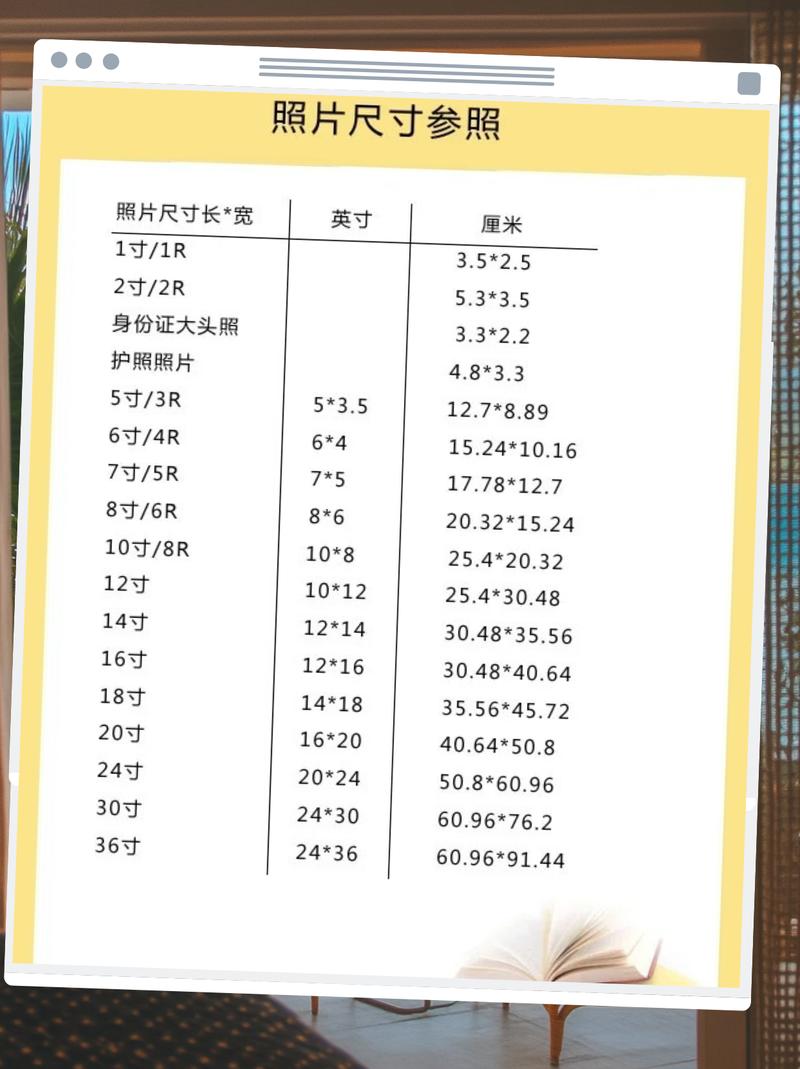 照片尺寸参照
照片尺寸长*宽 英寸 厘米
1寸/1R 3.5*2.5
2寸/2R 5.3*3.5
身份证大头照 3.3*2.2
护照照片 4.8*3.3
5寸/3R 5*3.5 12.7*8.89
6寸/4R 6*4 15.24*10.16
7寸/5R 7*5 17.78*12.7
8寸/6R 8*6 20.32*15.24
10寸/8R 10*8 25.4*20.32
12寸 10*12 25.4*30.48
14寸 12*14 30.48*35.56
16寸 12*16 30.48*40.64
18寸 14*18 35.56*45.72
20寸 16*20 40.64*50.8
24寸 20*24 50.8*60.96
30寸 24*30 60.96*76.2
36寸 24*36 60.96*91.44